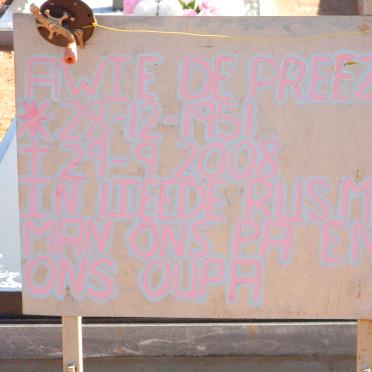 AWIE DE PREEZ
* 28-12-1951
† 29-9 2008
IN LIEFDE RUS M
MAN ONS PA EN
ONS OUPA